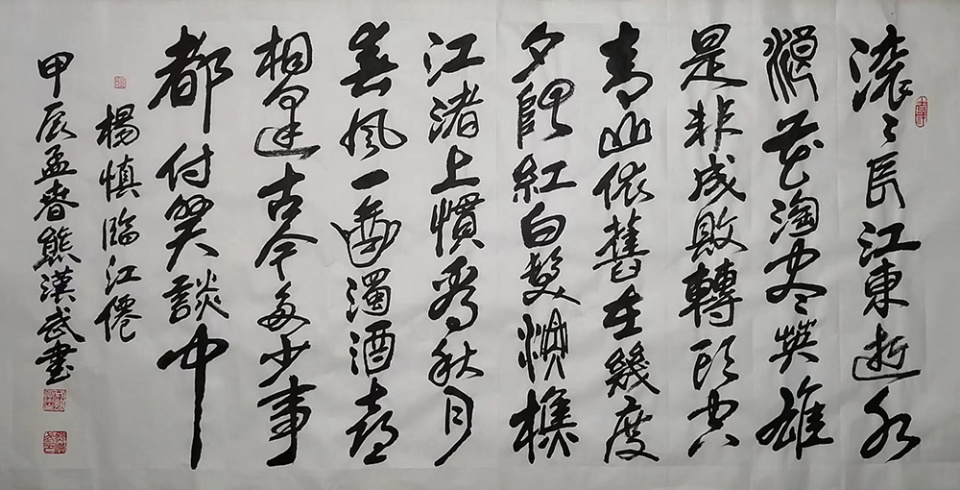 滚〻長江東逝水
浪花淘盡英雄
是非成敗轉頭空
青山依舊在幾度
夕陽紅白髮漁樵
江渚上慣看秋月
春風一壺濁酒喜
相逢古今多少事
都付笑談中
楊慎臨江僊
甲辰孟春熊漢武書